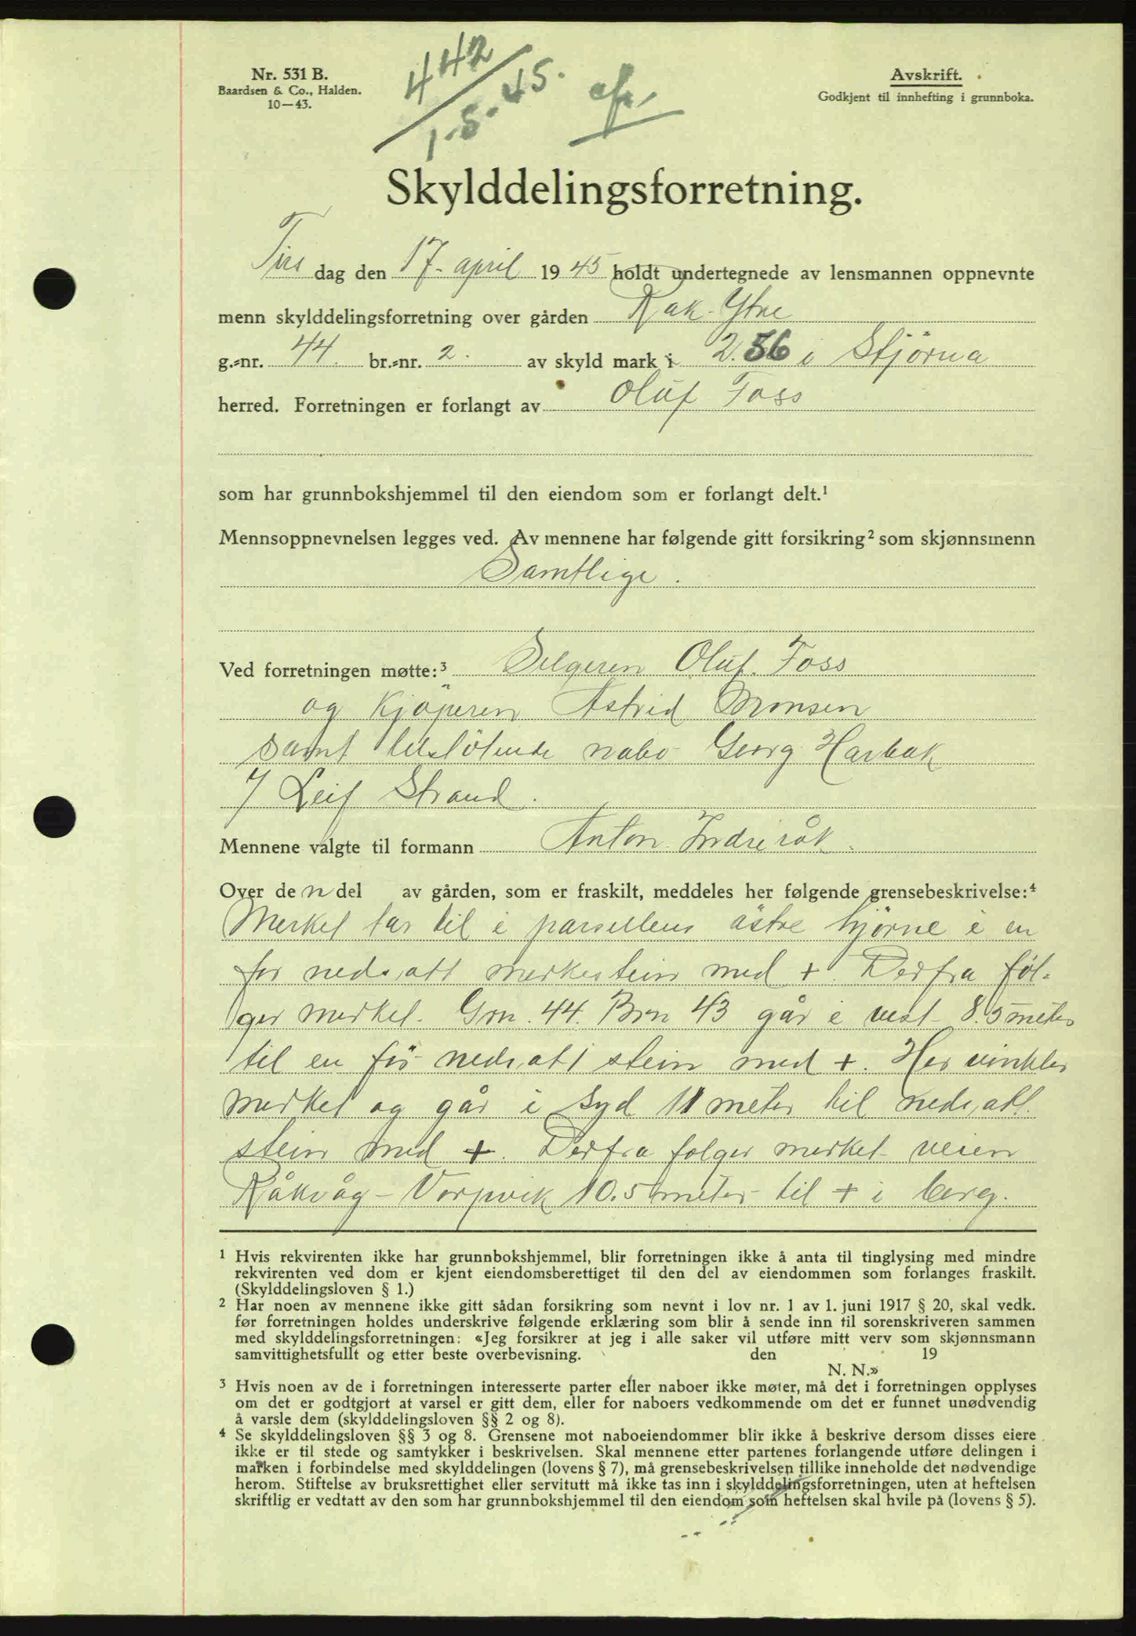 Nr. 531 B.
Baardsen & Co., Halden.
10—43.
442
1-5-45.
Avskrift.
Godkjent til innhefting i grunnboka.
Skylddelingsforretning.
Tirs dag den 17. april 1945 holdt undertegnede av lensmannen oppnevnte
menn skylddelingsforretning over gården Rak Ytre
g.-nr. 44. br.-nr. 2. av skyld mark 2.56 i Stjørna
herred. Forretningen er forlangt av Oluf Foss
som har grunnbokshjemmel til den eiendom som er forlangt delt.¹
Mennsoppnevnelsen legges ved. Av mennene har følgende gitt forsikring² som skjønnsmenn
Samtlige.
Ved forretningen møtte:³ Selgeren Oluf Foss
og Kjøperen Astrid Monsen
samt tilstötende nabo Georg Harbak
7 Leif Strand.
Mennene valgte til formann Anton Indre råk.
Over den del av gården, som er fraskilt, meddeles her følgende grensebeskrivelse:⁴
Merket tar til i parsellens östre hjörne i en
for nedsatt merkestein med +. Derfra föl-
ger merket. Grn. 44. Brn 43 går i vest 8.5 meter
til en för nedsatt stein med +. Her vinkler
merket og går i Syd 11 meter til nedsatt.
stein med +. Derfra følger merket veien
Råkvåg - Vorpvik 10.5 meter til + i berg.
¹ Hvis rekvirenten ikke har grunnbokshjemmel, blir forretningen ikke å anta til tinglysing med mindre
rekvirenten ved dom er kjent eiendomsberettiget til den del av eiendommen som forlanges fraskilt.
(Skylddelingsloven § 1.)
² Har noen av mennene ikke gitt sådan forsikring som nevnt i lov nr. 1 av 1. juni 1917 § 20, skal vedk.
før forretningen holdes underskrive følgende erklæring som blir å sende inn til sorenskriveren sammen
med skylddelingsforretningen: «Jeg forsikrer at jeg i alle saker vil utføre mitt verv som skjønnsmann
samvittighetsfullt og etter beste overbevisning. den 19
N. N.»
³ Hvis noen av de i forretningen interesserte parter eller naboer ikke møter, må det i forretningen opplyses
om det er godtgjort at varsel er gitt dem, eller for naboers vedkommende om det er funnet unødvendig
å varsle dem (skylddelingsloven §§ 2 og 8).
⁴ Se skylddelingsloven §§ 3 og 8. Grensene mot naboeiendommer blir ikke å beskrive dersom disses eiere
ikke er til stede og samtykker i beskrivelsen. Skal mennene etter partenes forlangende utføre delingen i
marken i forbindelse med skylddelingen (lovens § 7), må grensebeskrivelsen tillike inneholde det nødvendige
herom. Stiftelse av bruksrettighet eller servitutt må ikke tas inn i skylddelingsforretningen, uten at heftelsen
skriftlig er vedtatt av den som har grunnbokshjemmel til den eiendom som heftelsen skal hvile på (lovens § 5).